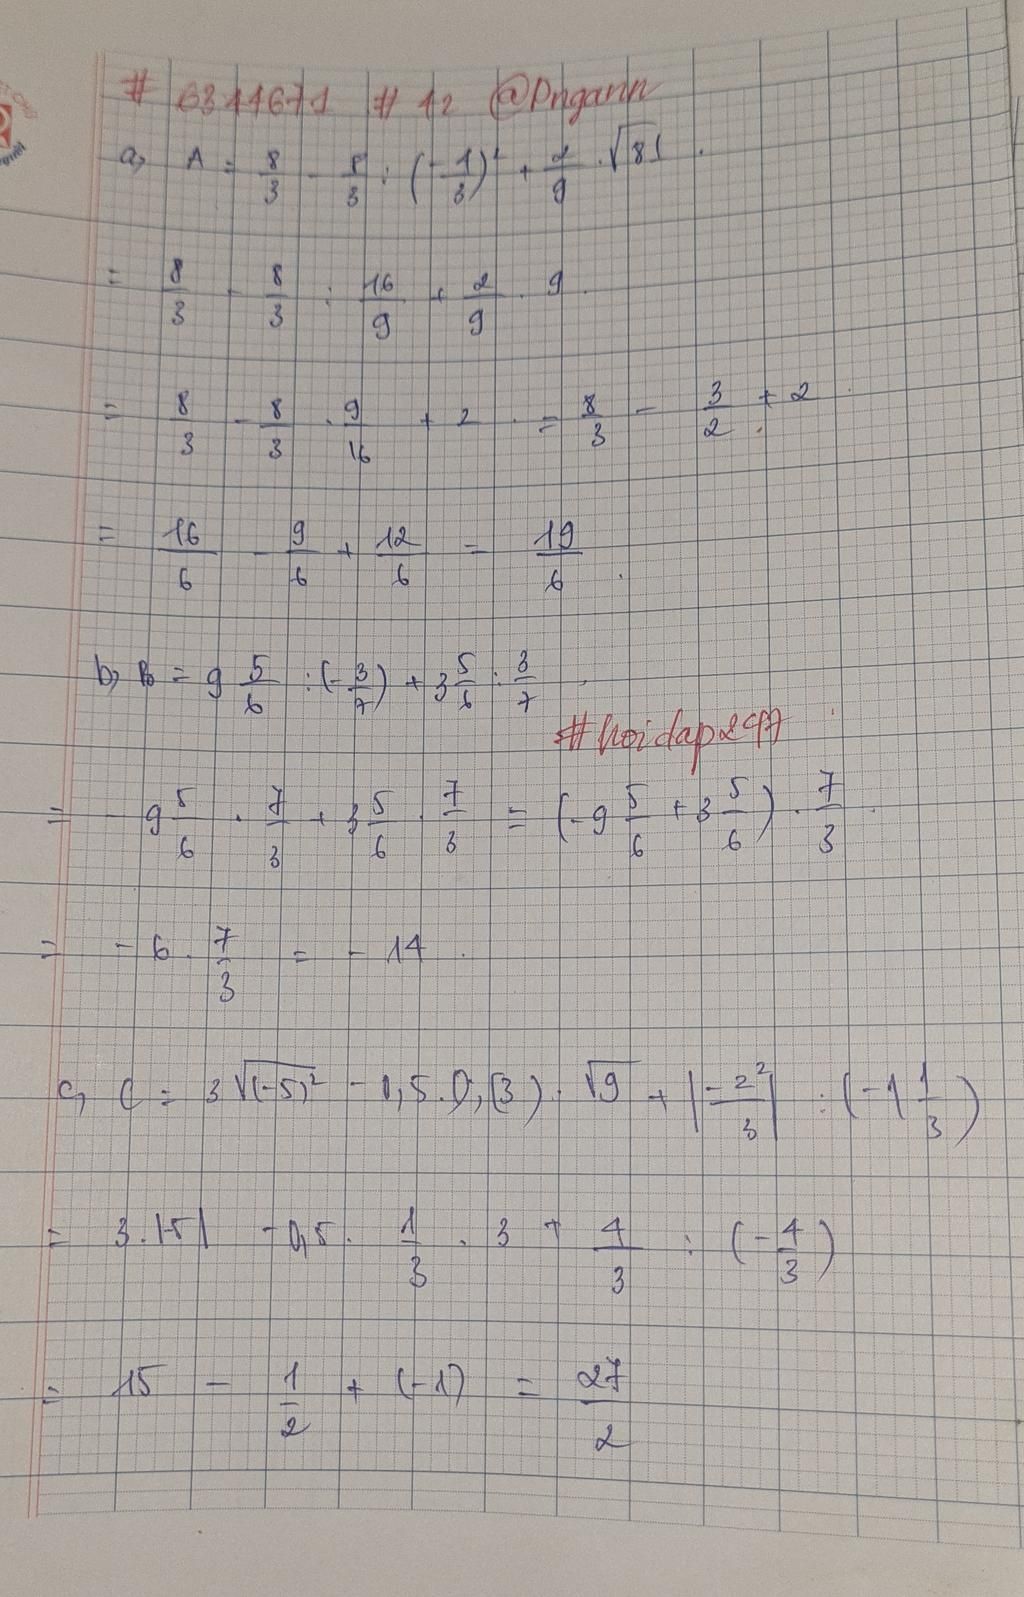 # 6311671 # 12 @Dngann
a, A = 8/3 - 8/3 : (-1/3)² + 2/9 . √81 .
= 8/3 - 8/3 : 16/9 + 2/9 . 9 .
= 8/3 - 8/3 . 9/16 + 2 . = 8/3 - 3/2 + 2 .
= 16/6 - 9/6 + 12/6 = 19/6 .
b, B = 9 5/6 : (-3/7) + 3 5/6 : 3/7 .
#hoidap247
= - 9 5/6 . 7/3 + 3 5/6 . 7/3 = (-9 5/6 + 3 5/6) . 7/3 .
= - 6 . 7/3 = - 14 .
c, C = 3√(-5)² - 0,5 . 0,(3) . √9 + |-2²/3| : (-1 1/3)
= 3.|-5| - 0,5 . 1/3 . 3 + 4/3 : (-4/3)
= 15 - 1/2 + (-1) = 27/2